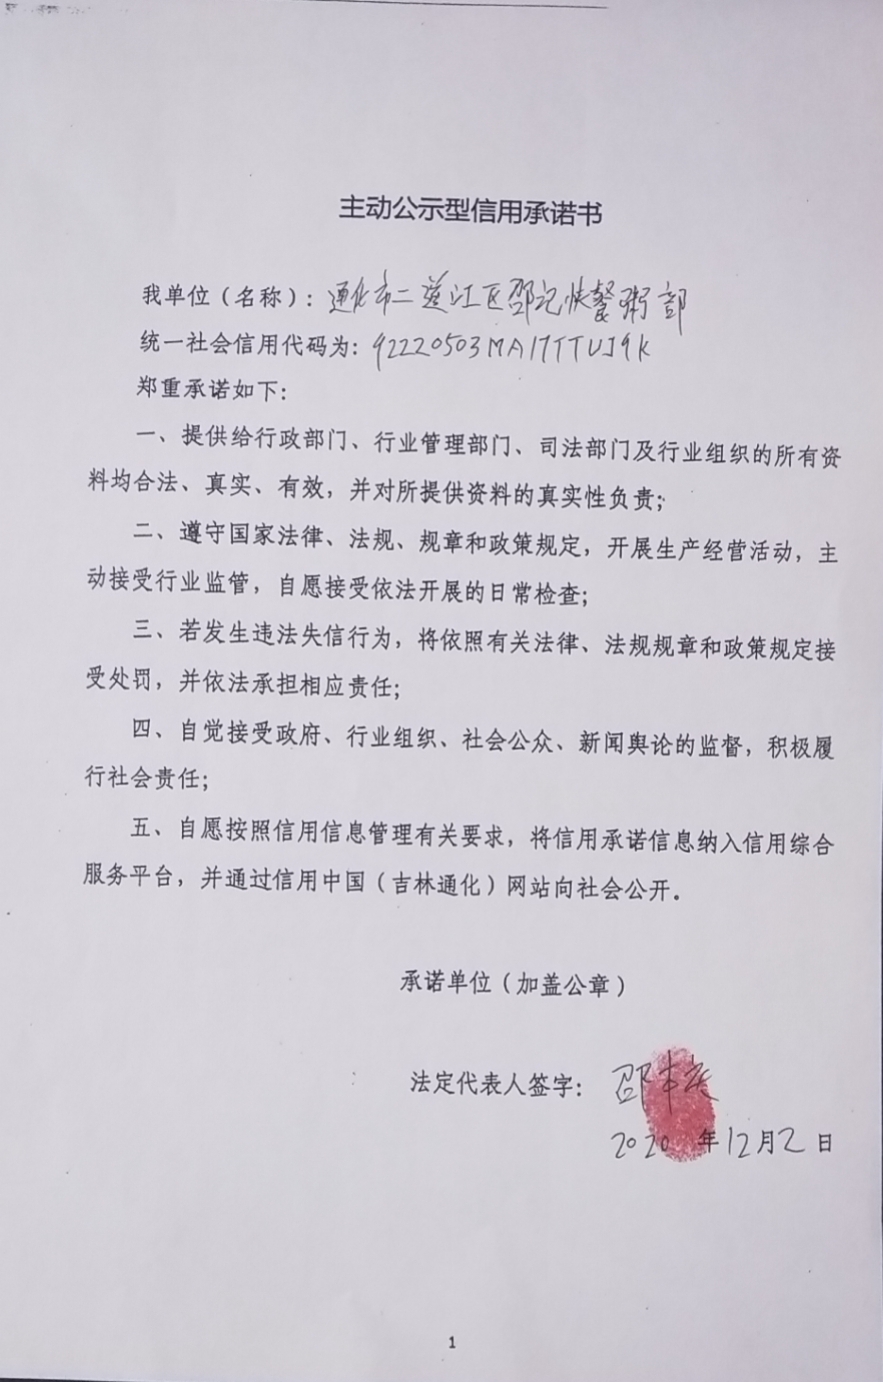 主动公示型信用承诺书
我单位（名称）：通化市二道江区邵记快餐粥部
统一社会信用代码为：92220503MA17TTUJ9K
郑重承诺如下：
一、提供给行政部门、行业管理部门、司法部门及行业组织的所有资
料均合法、真实、有效，并对所提供资料的真实性负责；
二、遵守国家法律、法规、规章和政策规定，开展生产经营活动，主
动接受行业监管，自愿接受依法开展的日常检查；
三、若发生违法失信行为，将依照有关法律、法规规章和政策规定接
受处罚，并依法承担相应责任；
四、自觉接受政府、行业组织、社会公众、新闻舆论的监督，积极履
行社会责任；
五、自愿按照信用信息管理有关要求，将信用承诺信息纳入信用综合
服务平台，并通过信用中国（吉林通化）网站向社会公开。
承诺单位（加盖公章）
法定代表人签字：邵
2020年12月2日
1